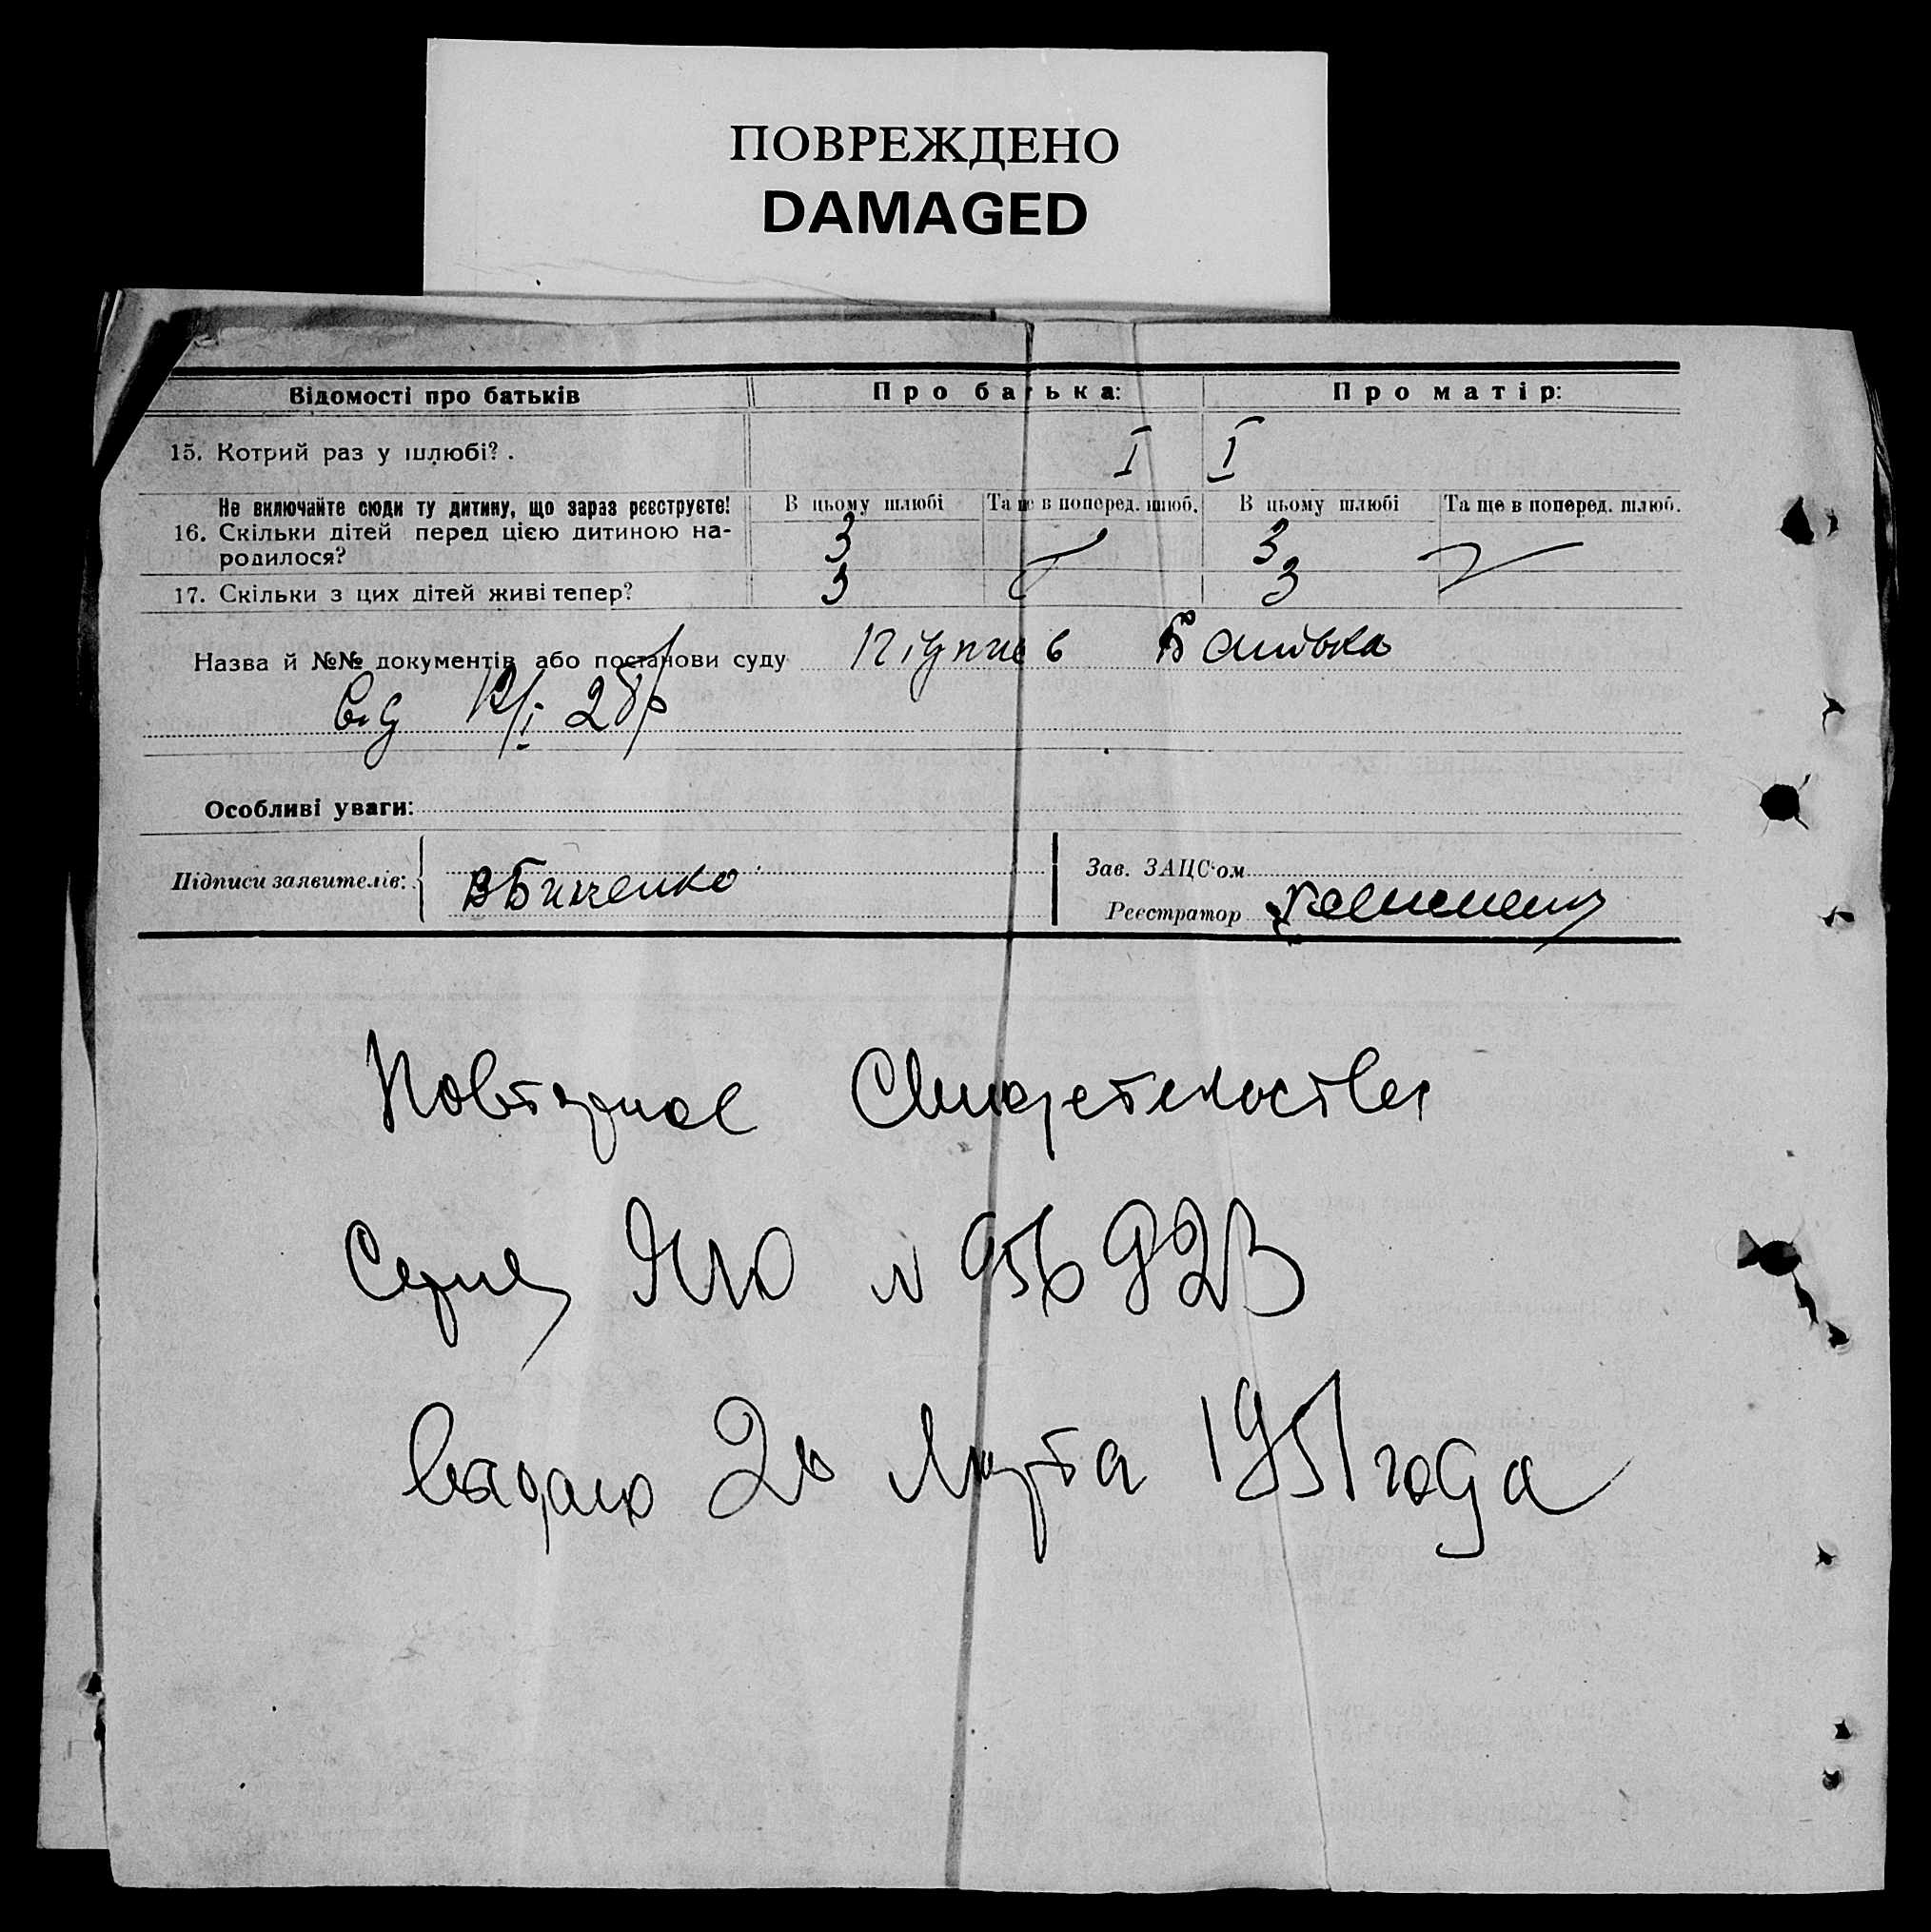 ПОВРЕЖДЕНО
DAMAGED
Відомості про батьків Про батька: Про матір:
15. Котрий раз у шлюбі? . I I
Не включайте сюди ту дитину, що зараз реєструєте! В цьому шлюбі Та ще в поперед. шлюб. В цьому шлюбі Та ще в поперед. шлюб.
16. Скільки дітей перед цією дитиною на- 3 3
родилося?
17. Скільки з цих дітей живі тепер? 3 3
Назва й №№ документів або постанови суду Батька
12/I 28 р
Особливі уваги:
Підписи заявителів:
Зав. ЗАЦС'ом
Реєстратор
Повторное Свидетельство
Серия ЯЮ N 956923
выдано 20 Марта 1951 года